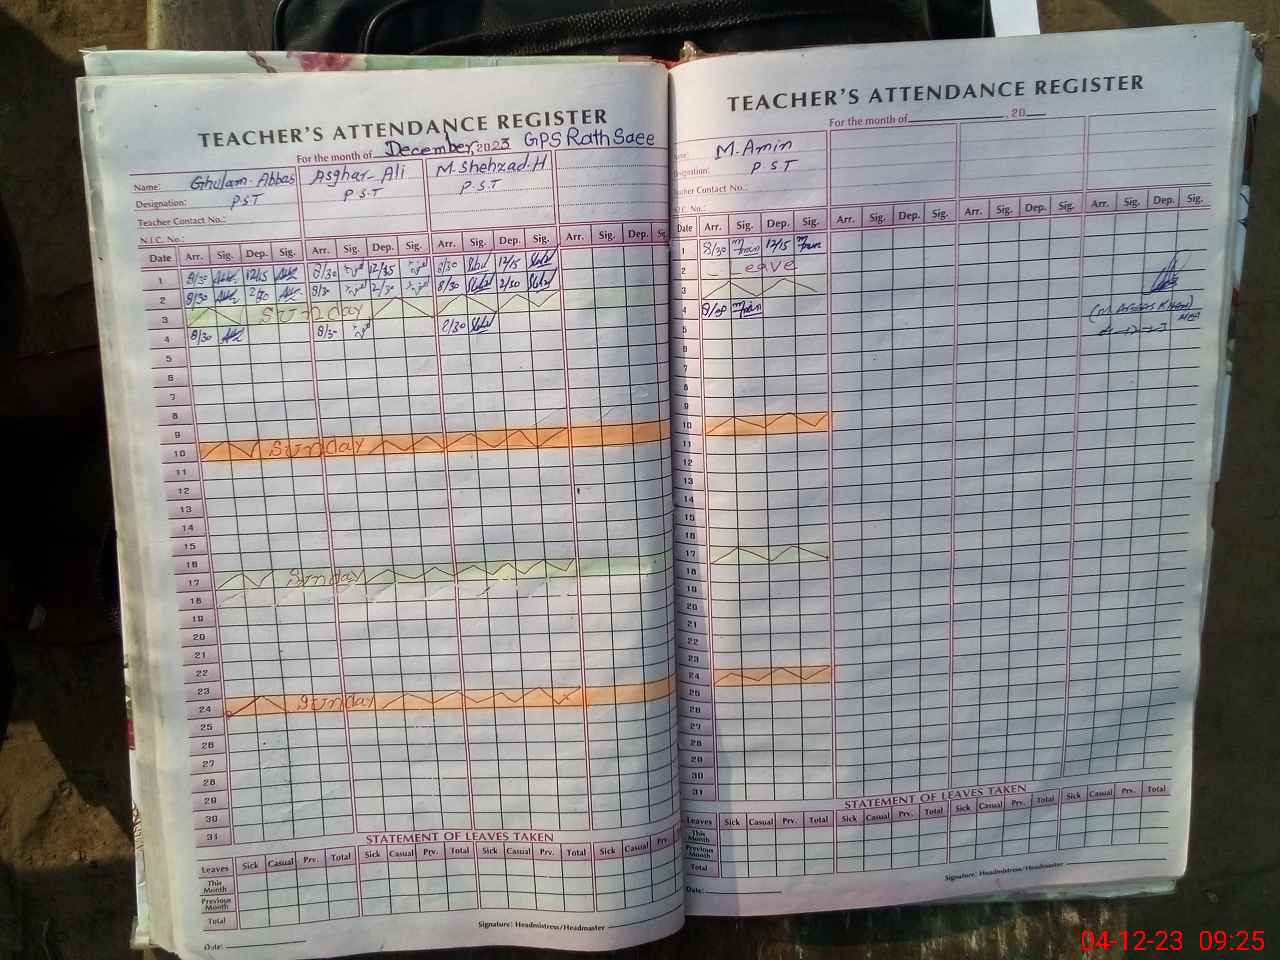 TEACHER'S ATTENDANCE REGISTER
For the month of December, 2023 GPS Rath Saee
Name: Ghulam-Abbas Asghar-Ali M.Shehzad.H
Designation: PST P.S.T P.S.T
Teacher Contact No.:
N.I.C. No.:
Date Arr. Sig. Dep. Sig. Arr. Sig. Dep. Sig. Arr. Sig. Dep. Sig. Arr. Sig. Dep.
1 8/30 12/15 8/30 12/15 8/30 12/15
2 8/30 2/30 8/30 2/30 8/30 2/30
3 Sunday
4 8/30 8/30
5
6
7
8
9
10 Sunday
11
12
13
14
15
16
17 Sunday
18
19
20
21
22
23
24 Sunday
25
26
27
28
29
30
31
STATEMENT OF LEAVES TAKEN
Leaves Sick Casual Prv. Total Sick Casual Prv. Total Sick Casual Prv. Total Sick Casual Prv.
This Month
Previous Month
Total
Signature: Headmistress/Headmaster
Date:
TEACHER'S ATTENDANCE REGISTER
For the month of 20
Name: M.Amin
Designation: P.S.T
Teacher Contact No.:
N.I.C. No.:
Arr. Sig. Dep. Sig. Arr. Sig. Dep. Sig. Arr. Sig. Dep. Sig. Arr. Sig. Dep. Sig.
1 8/30 12/15
2 Leave
3
4
5
6
7
8
9
10
11
12
13
14
15
16
17
18
19
20
21
22
23
24
25
26
27
28
29
30
31
STATEMENT OF LEAVES TAKEN
Leaves Sick Casual Prv. Total Sick Casual Prv. Total Sick Casual Prv. Total Sick Casual Prv. Total
This Month
Previous Month
Total
Signature: Headmistress/Headmaster
Date:
04-12-23 09:25